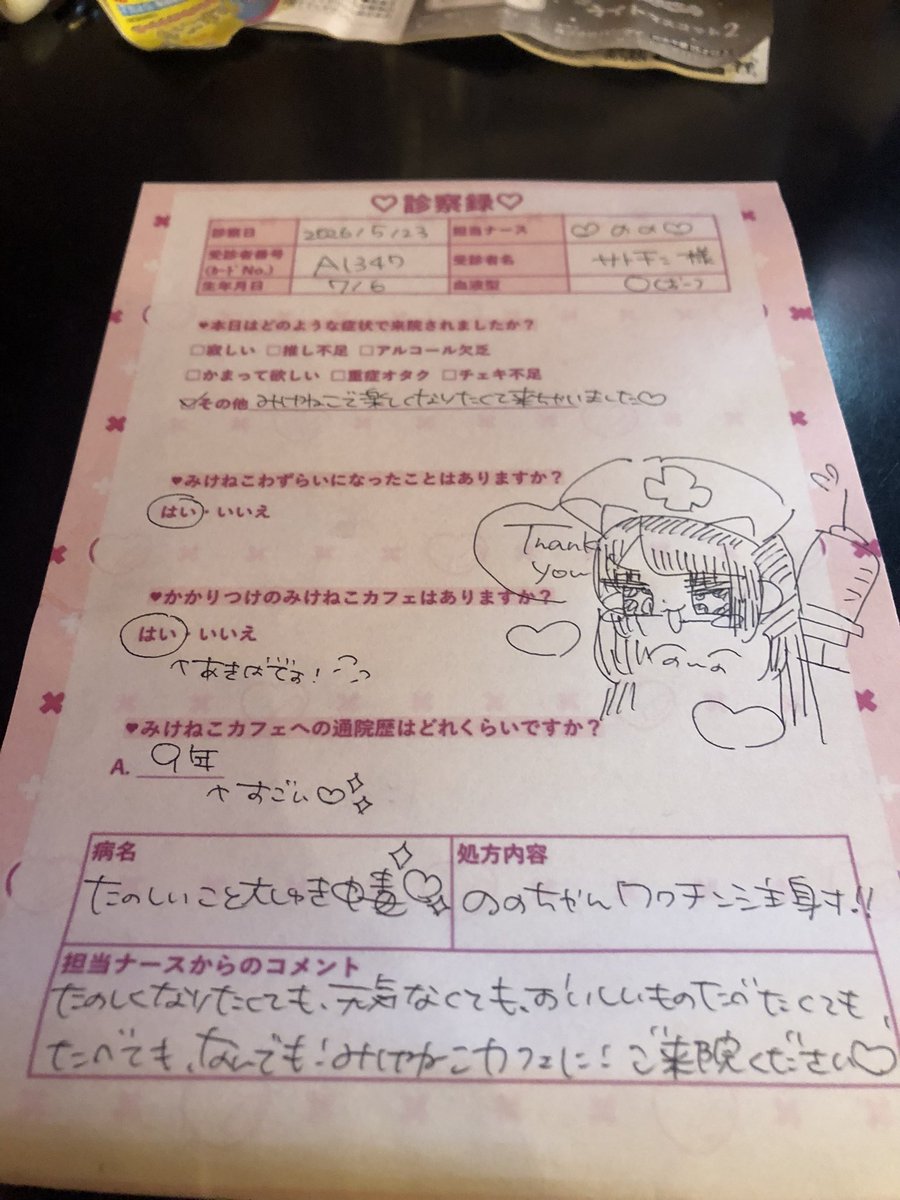 イトマスコット2
♡診察録♡
診察日 2026/5/23 担当ナース ♡のの♡
受診者番号 (カードNo.) A1347 受診者名 サトチン様
生年月日 7/6 血液型 〇(おーつ
♥本日はどのような症状で来院されましたか？
□寂しい □推し不足 □アルコール欠乏
□かまって欲しい □重症オタク □チェキ不足
☑その他 みけねこで楽しくなりたくて来ちゃいました♡
♥みけねこわずらいになったことはありますか？
はい・いいえ
Thank you
♥かかりつけのみけねこカフェはありますか？
はい・いいえ
↑あきばでよ！
のーの
♥みけねこカフェへの通院歴はどれくらいですか？
A. 9年
↑すごい♡
病名
たのしいこと大しゅき中毒♡
処方内容
ののちゃんワクチン注射す!!
担当ナースからのコメント
たのしくなりたくても、元気なくても、おいしいものたべたくても
たべても、なんでも！みけねこカフェに！ご来院ください♡